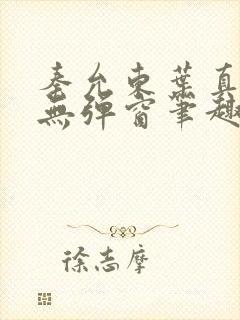 秦允東葉真
無彈窗筆趣
徐志摩